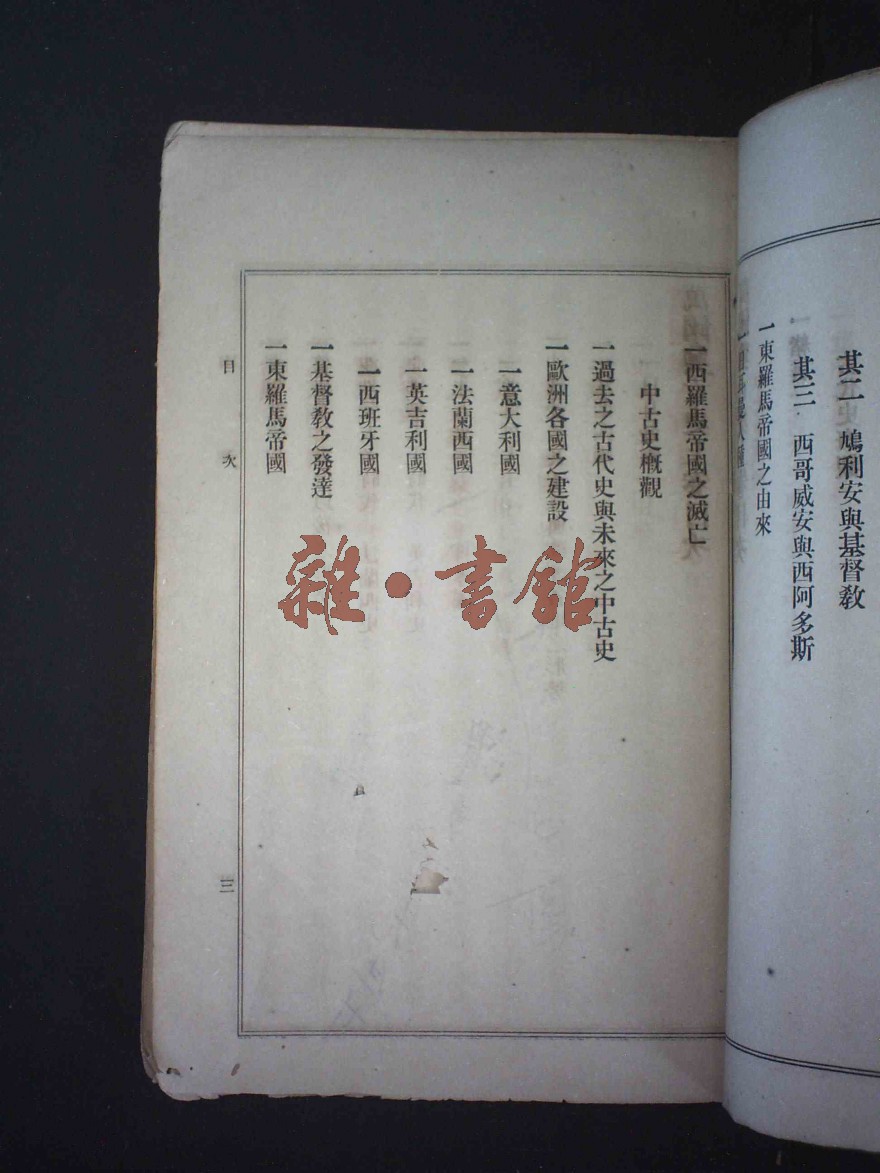 其二 鳩利安與基督教
其三 西哥威安與西阿多斯
一東羅馬帝國之由來
一日耳曼人種
一西羅馬帝國之滅亡
中古史槪觀
一過去之古代史與未來之中古史
一歐洲各國之建設
一意大利國
一法蘭西國
一英吉利國
一西班牙國
一基督敎之發達
一東羅馬帝國
目次
三
雜·書館